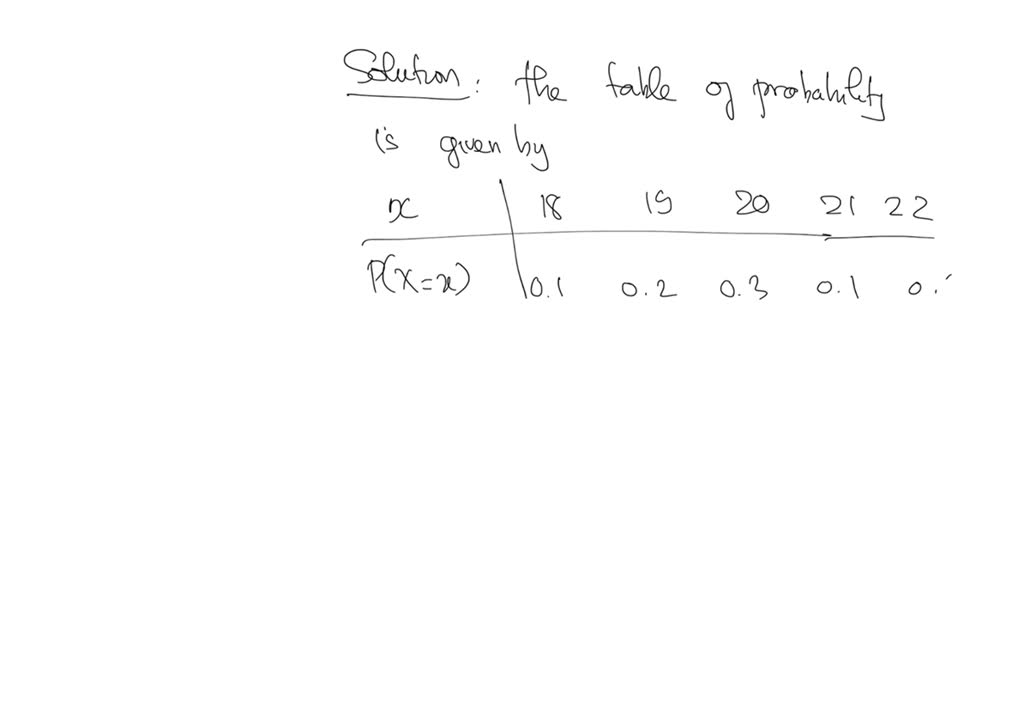 Solution: the table of probability
is given by
x 18 19 20 21 22
P(X=x) 0.1 0.2 0.3 0.1 0.